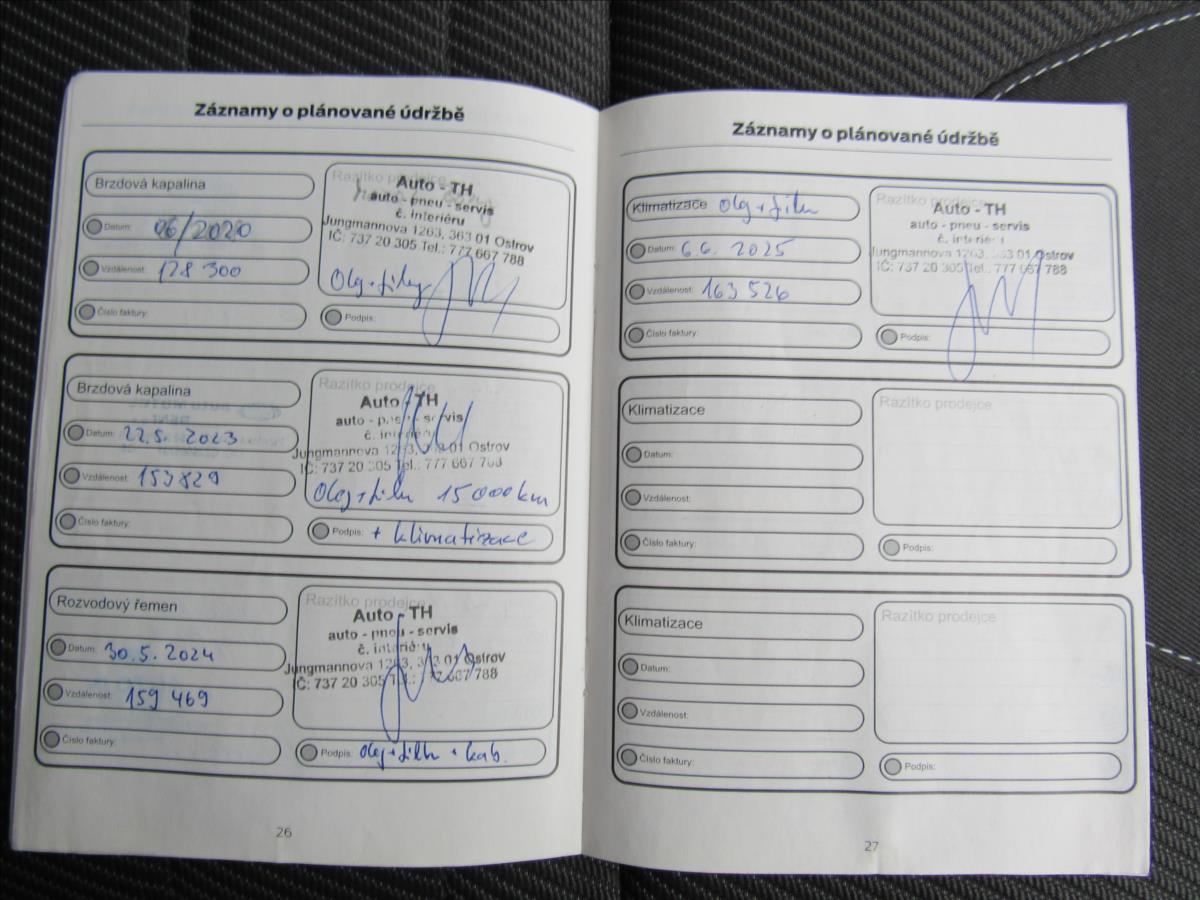 Záznamy o plánované údržbě
Brzdová kapalina
Datum: 06/2020
Vzdálenost: 128 300
Číslo faktury:
Razítko prodejce
Auto - TH
auto - pneu - servis
č. interiéru
Jungmannova 1263, 363 01 Ostrov
IČ: 737 20 305 Tel.: 777 667 788
Olej + filtry
Podpis:
Brzdová kapalina
Datum: 22.5. 2023
Vzdálenost: 153829
Číslo faktury:
Razítko prodejce
Auto - TH
auto - pneu - servis
č. interiéru
Jungmannova 1263, 363 01 Ostrov
IČ: 737 20 305 Tel.: 777 667 788
Olej + filtr 15 000 km
Podpis: + klimatizace
Rozvodový řemen
Datum: 30.5. 2024
Vzdálenost: 159 469
Číslo faktury:
Razítko prodejce
Auto - TH
auto - pneu - servis
č. interiéru
Jungmannova 1263, 363 01 Ostrov
IČ: 737 20 305 Tel.: 777 667 788
Podpis: olej + filtr + kab.
26
Záznamy o plánované údržbě
Klimatizace Olej + filtr
Datum: 6.6. 2025
Vzdálenost: 163 526
Číslo faktury:
Razítko prodejce
Auto - TH
auto - pneu - servis
č. interiéru
Jungmannova 1263, 363 01 Ostrov
IČ: 737 20 305 Tel.: 777 667 788
Podpis:
Klimatizace
Datum:
Vzdálenost:
Číslo faktury:
Razítko prodejce
Podpis:
Klimatizace
Datum:
Vzdálenost:
Číslo faktury:
Razítko prodejce
Podpis:
27